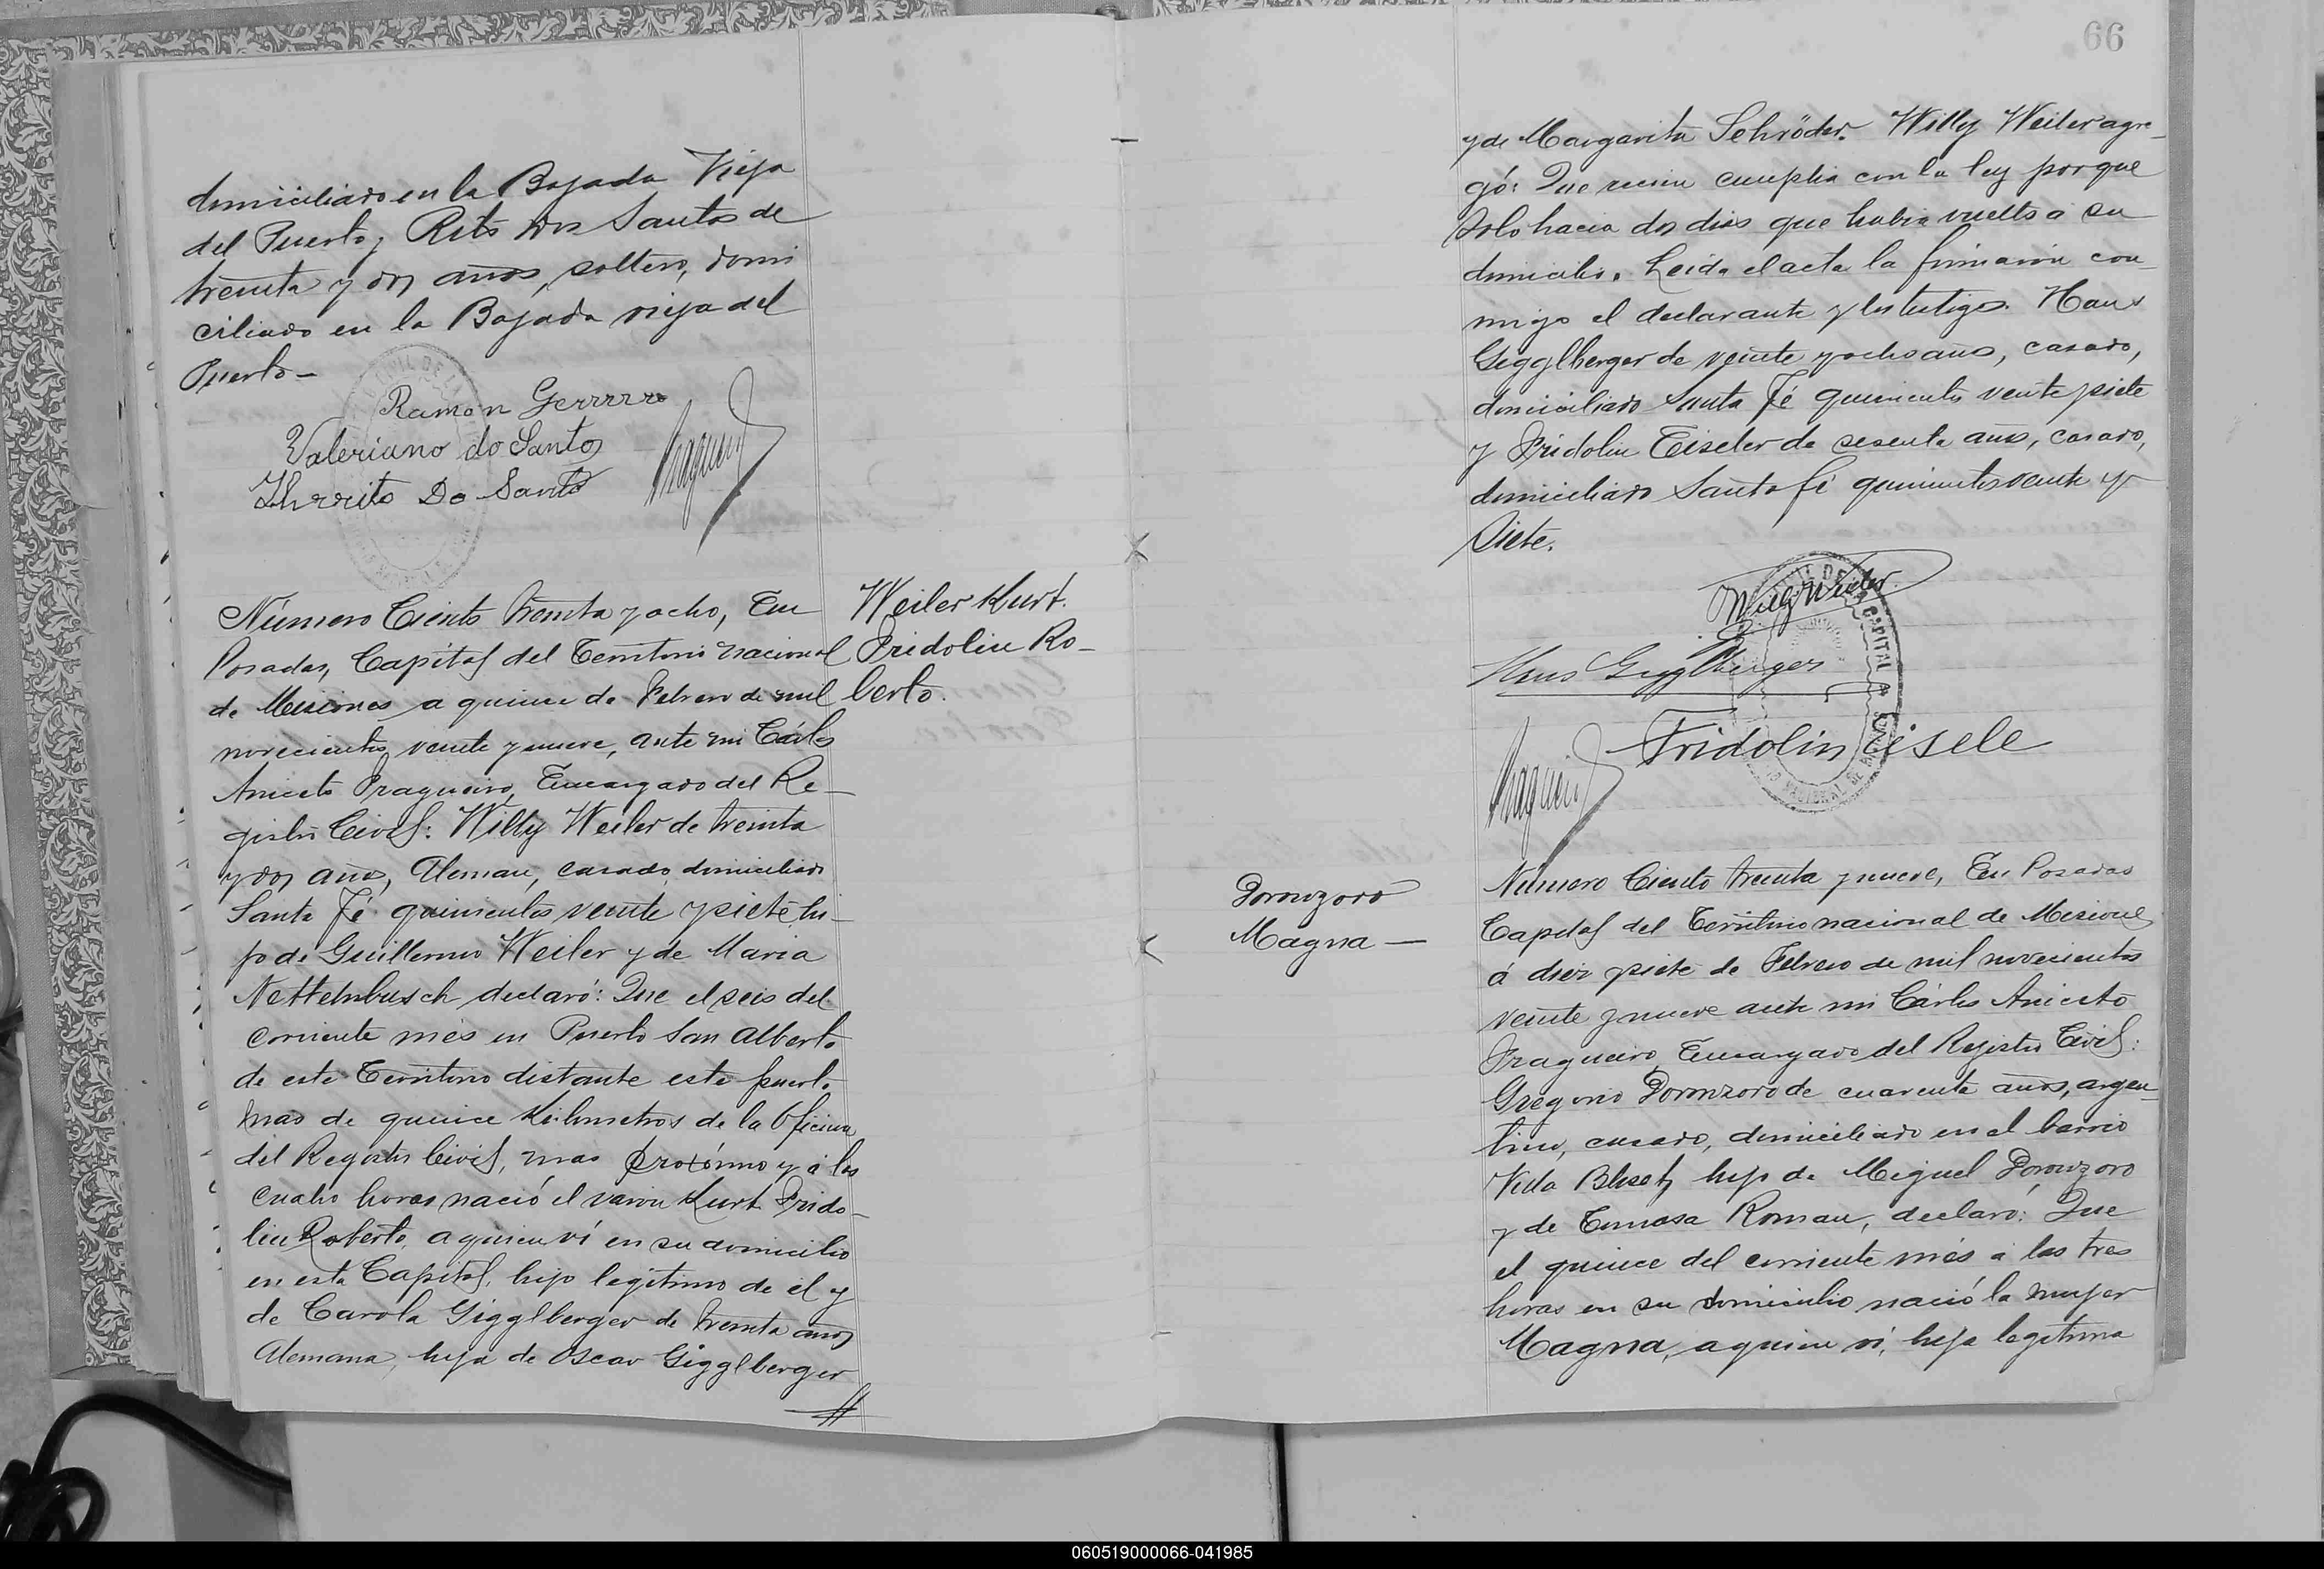 domiciliado en la Bajada Vieja
del Puerto, Rito dos Santos de
treinta y dos años, soltero, domi
ciliado en la Bajada vieja del
Puerto -
Ramon
Valeriano do Santos
Do Santo
Número Ciento treinta y ocho, En
Posadas, Capital del Territorio nacional
de Misiones a quince de Febrero de mil
novecientos veinte y nueve, ante mi Cárlos
Aniceto Fragueiro, Encargado del Re-
gistro Civil: Willy Weiler de treinta
y dos años, Aleman, casado, domiciliado
Santa Fé quinientos veinte y siete, hi-
jo de Guillermo Weiler y de Maria
Nettelnbusch declaró: Que el seis del
corriente més en Puerto San Alberto
de este Territorio distante este puerto
mas de quince Kilometros de la Oficina
del Registro Civil, mas proxímo y á las
cuatro horas nació el varon Kurt Frido-
lin Roberto, a quien ví en su domicilio
en esta Capital, hijo legítimo de él y
de Carola Gigglberger de treinta años
Alemana, hija de Oscar Gigglberger
Weiler Kurt.
Fridolin Ro-
berto.
66
y de Margarita Schröder. Willy Weiler agre-
gó: Que recien cumplia con la ley porque
solo hacia dos dias que habia vuelto a su
domicilio. Leida el acta la firmaron con-
migo el declarante y los testigos. Hans
Gigglberger de veinte y ocho años, casado,
domiciliado Santa Fé quinientos veinte y siete
y Fridolin Eiseler de sesenta años, casado,
domiciliado Santa fé quinientos veinte y
Siete.
Willy Weiler
Hans Gigglberger
Fridolin Eisele
CAPITAL
Doronzoro
Magna -
Número Ciento treinta y nueve, En Posadas
Capital del Territorio nacional de Misiones
á diez y siete de Febrero de mil novecientos
veinte y nueve ante mi Cárlos Aniceto
Fragueiro, Encargado del Registro Civil:
Gregorio Doronzoro de cuarenta años, argen-
tino, casado, domiciliado en el barrio
Villa Blosset, hijo de Miguel Doronzoro
y de Tomasa Roman, declaró: Que
el quince del corriente més á las tres
horas en su domicilio nació la mujer
Magna, a quien ví, hija legítima
060519000066-041985